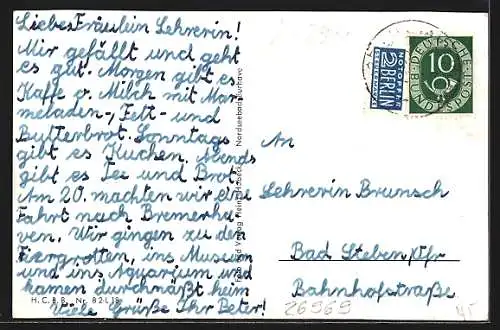 Liebes Fräulein Lehrerin!
Mir gefällt und geht
es gut. Morgen gibt es
Kaffe o. Milch mit Mar-
meladen-, Fett- und
Butterbrot. Sonntags
gibt es Kuchen. Abends
gibt es Tee und Brot.
Am 20. machten wir eine
Fahrt nach Bremerha-
ven. Wir gingen zu den
Tiergrotten, ins Museum
und ins Aquarium und
kamen durchnäßt heim
Viele Grüße Ihr Peter!
H.C.B.B. Nr. 82418
Nordseebad Burhave
NOTOPFER
2 BERLIN
STEUERMARKE
DEUTSCHE
BUNDESPOST
10
An
Lehrerin Brunsch
Bad Steben, Ofr.
Bahnhofstraße
26969